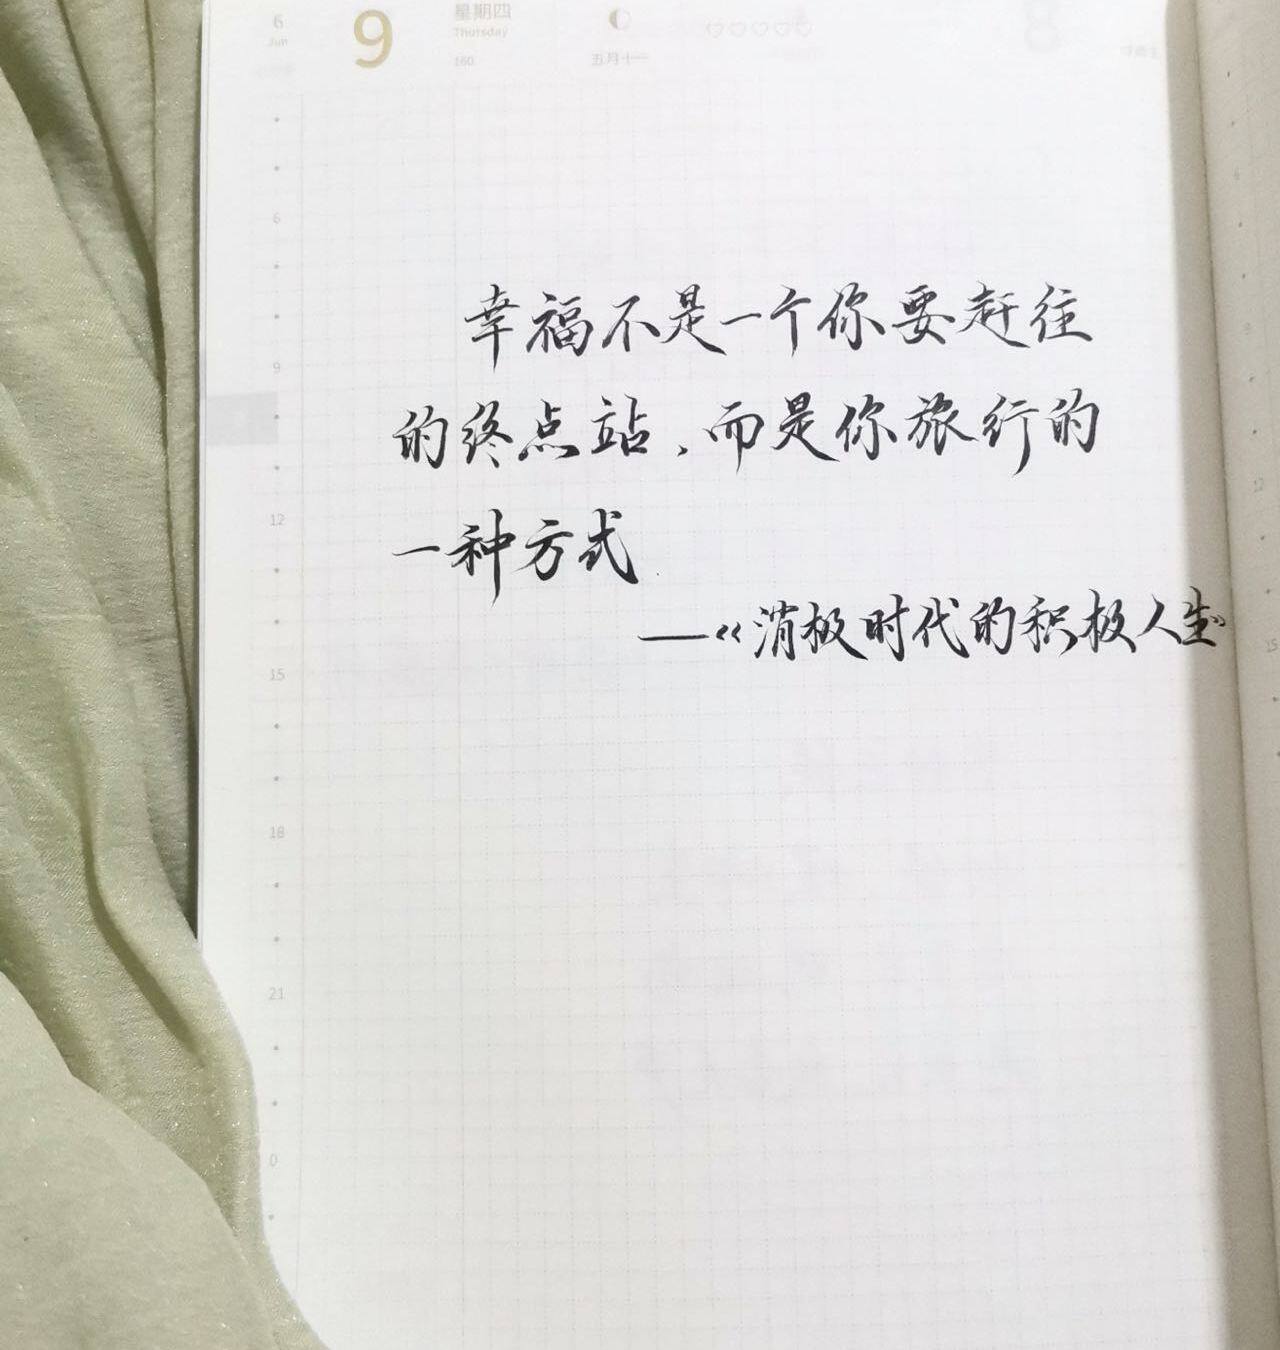 6 9 星期四
Jun Thursday
160 五月十一
幸福不是一个你要赶往
的终点站，而是你旅行的
一种方式
——《消极时代的积极人生》
6
9
12
15
18
21
0
8
6
9
12
15